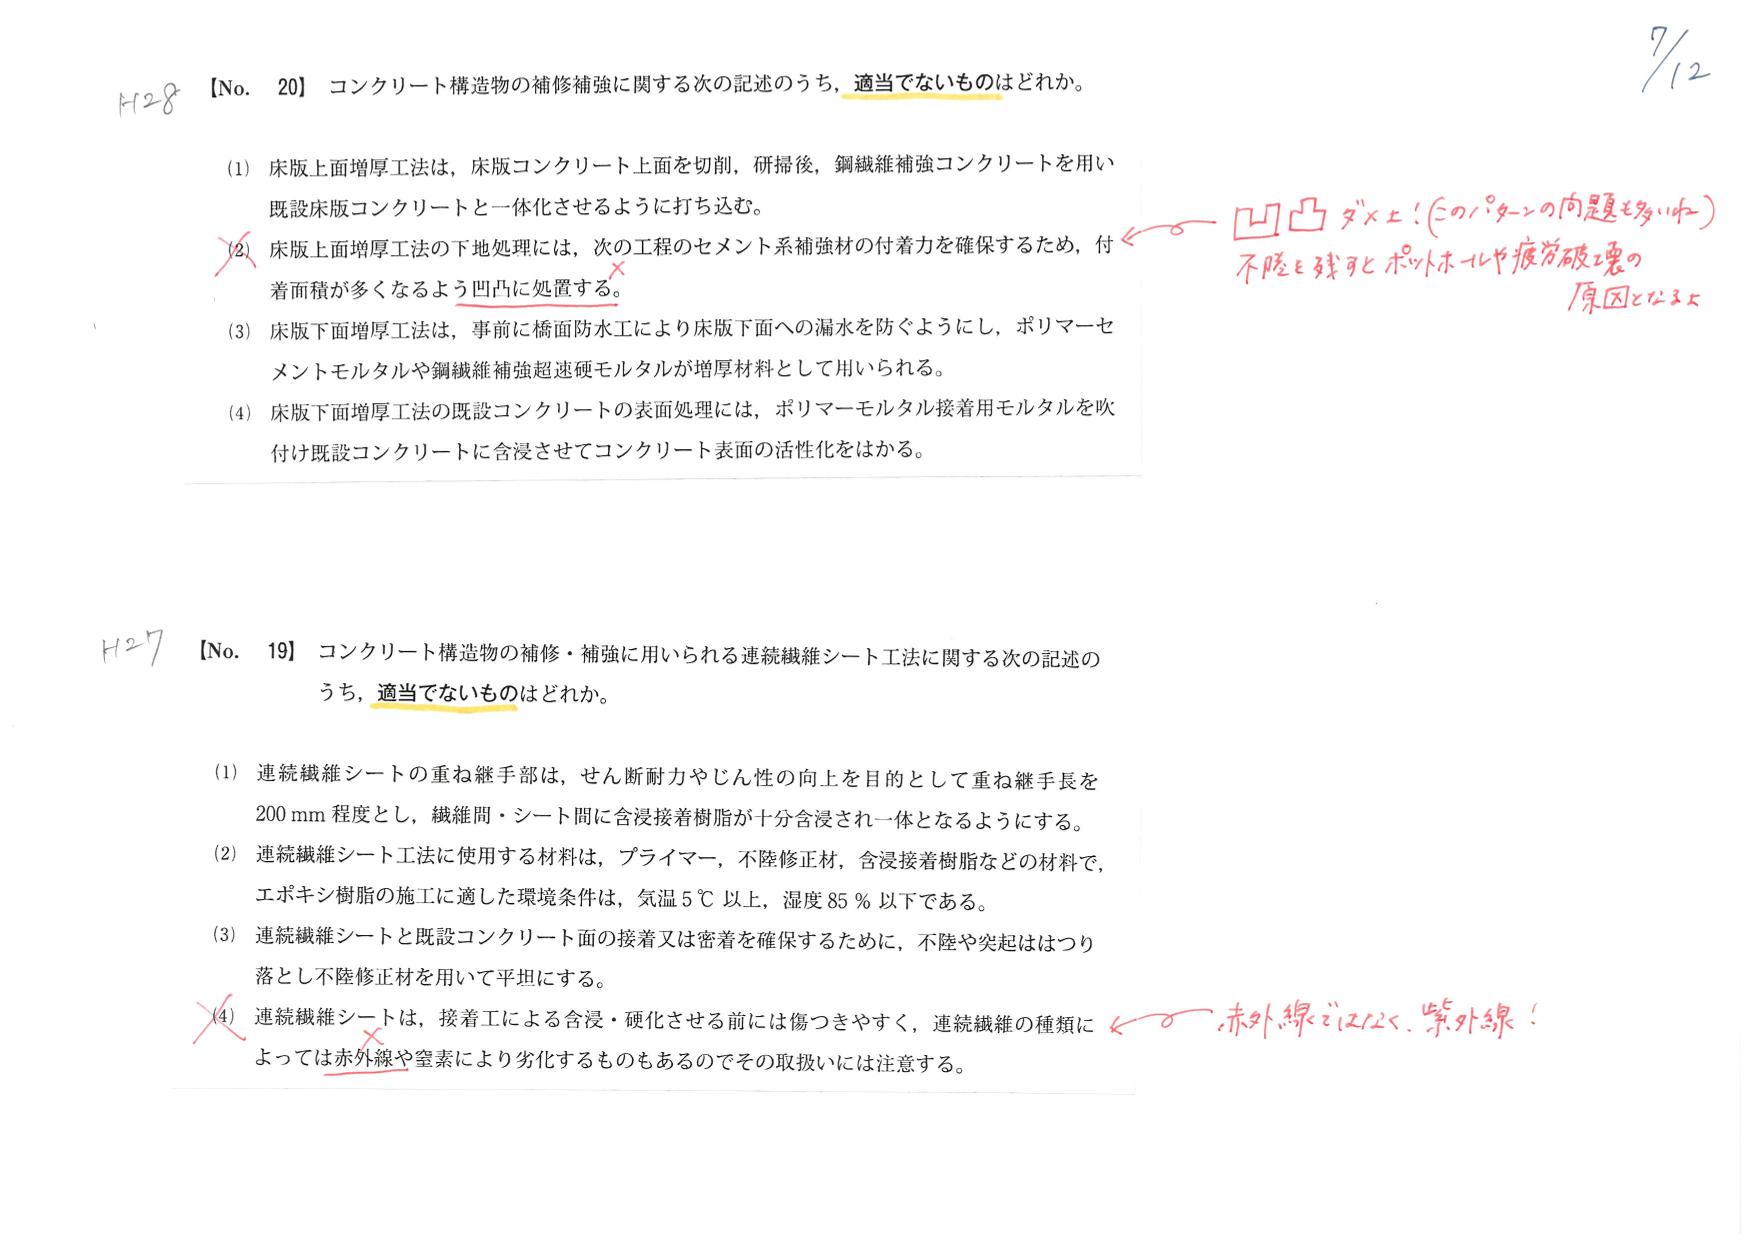 7/12
H28
【No. 20】 コンクリート構造物の補修補強に関する次の記述のうち，適当でないものはどれか。
(1) 床版上面増厚工法は，床版コンクリート上面を切削，研掃後，鋼繊維補強コンクリートを用い
既設床版コンクリートと一体化させるように打ち込む。
(2) 床版上面増厚工法の下地処理には，次の工程のセメント系補強材の付着力を確保するため，付
着面積が多くなるよう凹凸に処置する。
凹凸ダメよ！(このパターンの問題も多いわ)
不陸を残すとポットホールや疲労破壊の
原因となるよ
(3) 床版下面増厚工法は，事前に橋面防水工により床版下面への漏水を防ぐようにし，ポリマーセ
メントモルタルや鋼繊維補強超速硬モルタルが増厚材料として用いられる。
(4) 床版下面増厚工法の既設コンクリートの表面処理には，ポリマーモルタル接着用モルタルを吹
付け既設コンクリートに含浸させてコンクリート表面の活性化をはかる。
H27
【No. 19】 コンクリート構造物の補修・補強に用いられる連続繊維シート工法に関する次の記述の
うち，適当でないものはどれか。
(1) 連続繊維シートの重ね継手部は，せん断耐力やじん性の向上を目的として重ね継手長を
200 mm 程度とし，繊維間・シート間に含浸接着樹脂が十分含浸され一体となるようにする。
(2) 連続繊維シート工法に使用する材料は，プライマー，不陸修正材，含浸接着樹脂などの材料で，
エポキシ樹脂の施工に適した環境条件は，気温 5 ℃ 以上，湿度 85 ％ 以下である。
(3) 連続繊維シートと既設コンクリート面の接着又は密着を確保するために，不陸や突起ははつり
落とし不陸修正材を用いて平坦にする。
(4) 連続繊維シートは，接着工による含浸・硬化させる前には傷つきやすく，連続繊維の種類に
よっては赤外線や窒素により劣化するものもあるのでその取扱いには注意する。
赤外線ではなく、紫外線！